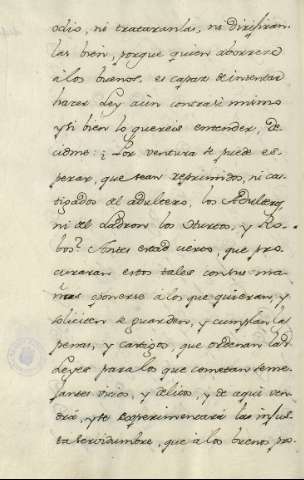 odio, ni trataranlas, ni dirijiran-
las bien, porque quien aborrece
à los buenos, es capaz de inventar
hazer Ley aùn contra si mismo
y si bien lo quereis entender, de-
cidme: ¿Por ventura se puede es-
perar, que sean reprimidos, ni cas-
tigados del adultero, los Adulterios
ni del Ladron los Hurtos, y Ro-
bos? Antes estad ciertos, que pro-
curaran estos tales con sus ma-
ñas oponerse à los que quieran, y
soliciten se guarden, y cumplan las
penas, y castigos, que ordenan las
Leyes para los que cometan seme-
jantes vicios, y delitos, y de aqui ven-
drà, y se experimentarà la injus-
ta servidumbre, que à los buenos pro-